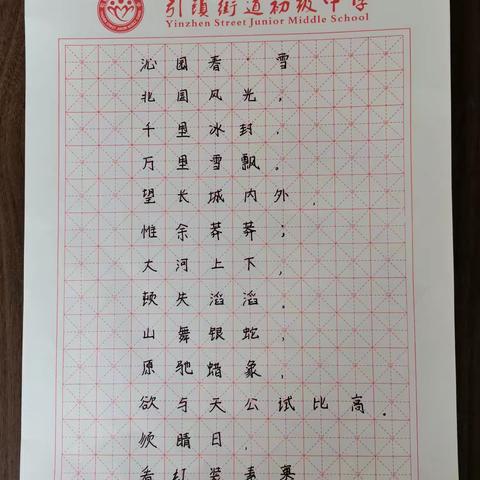 引镇街道初级中学
Yinzhen Street Junior Middle School
沁园春·雪
北国风光，
千里冰封，
万里雪飘。
望长城内外，
惟余莽莽；
大河上下，
顿失滔滔。
山舞银蛇，
原驰蜡象，
欲与天公试比高。
须晴日，
看红装素裹